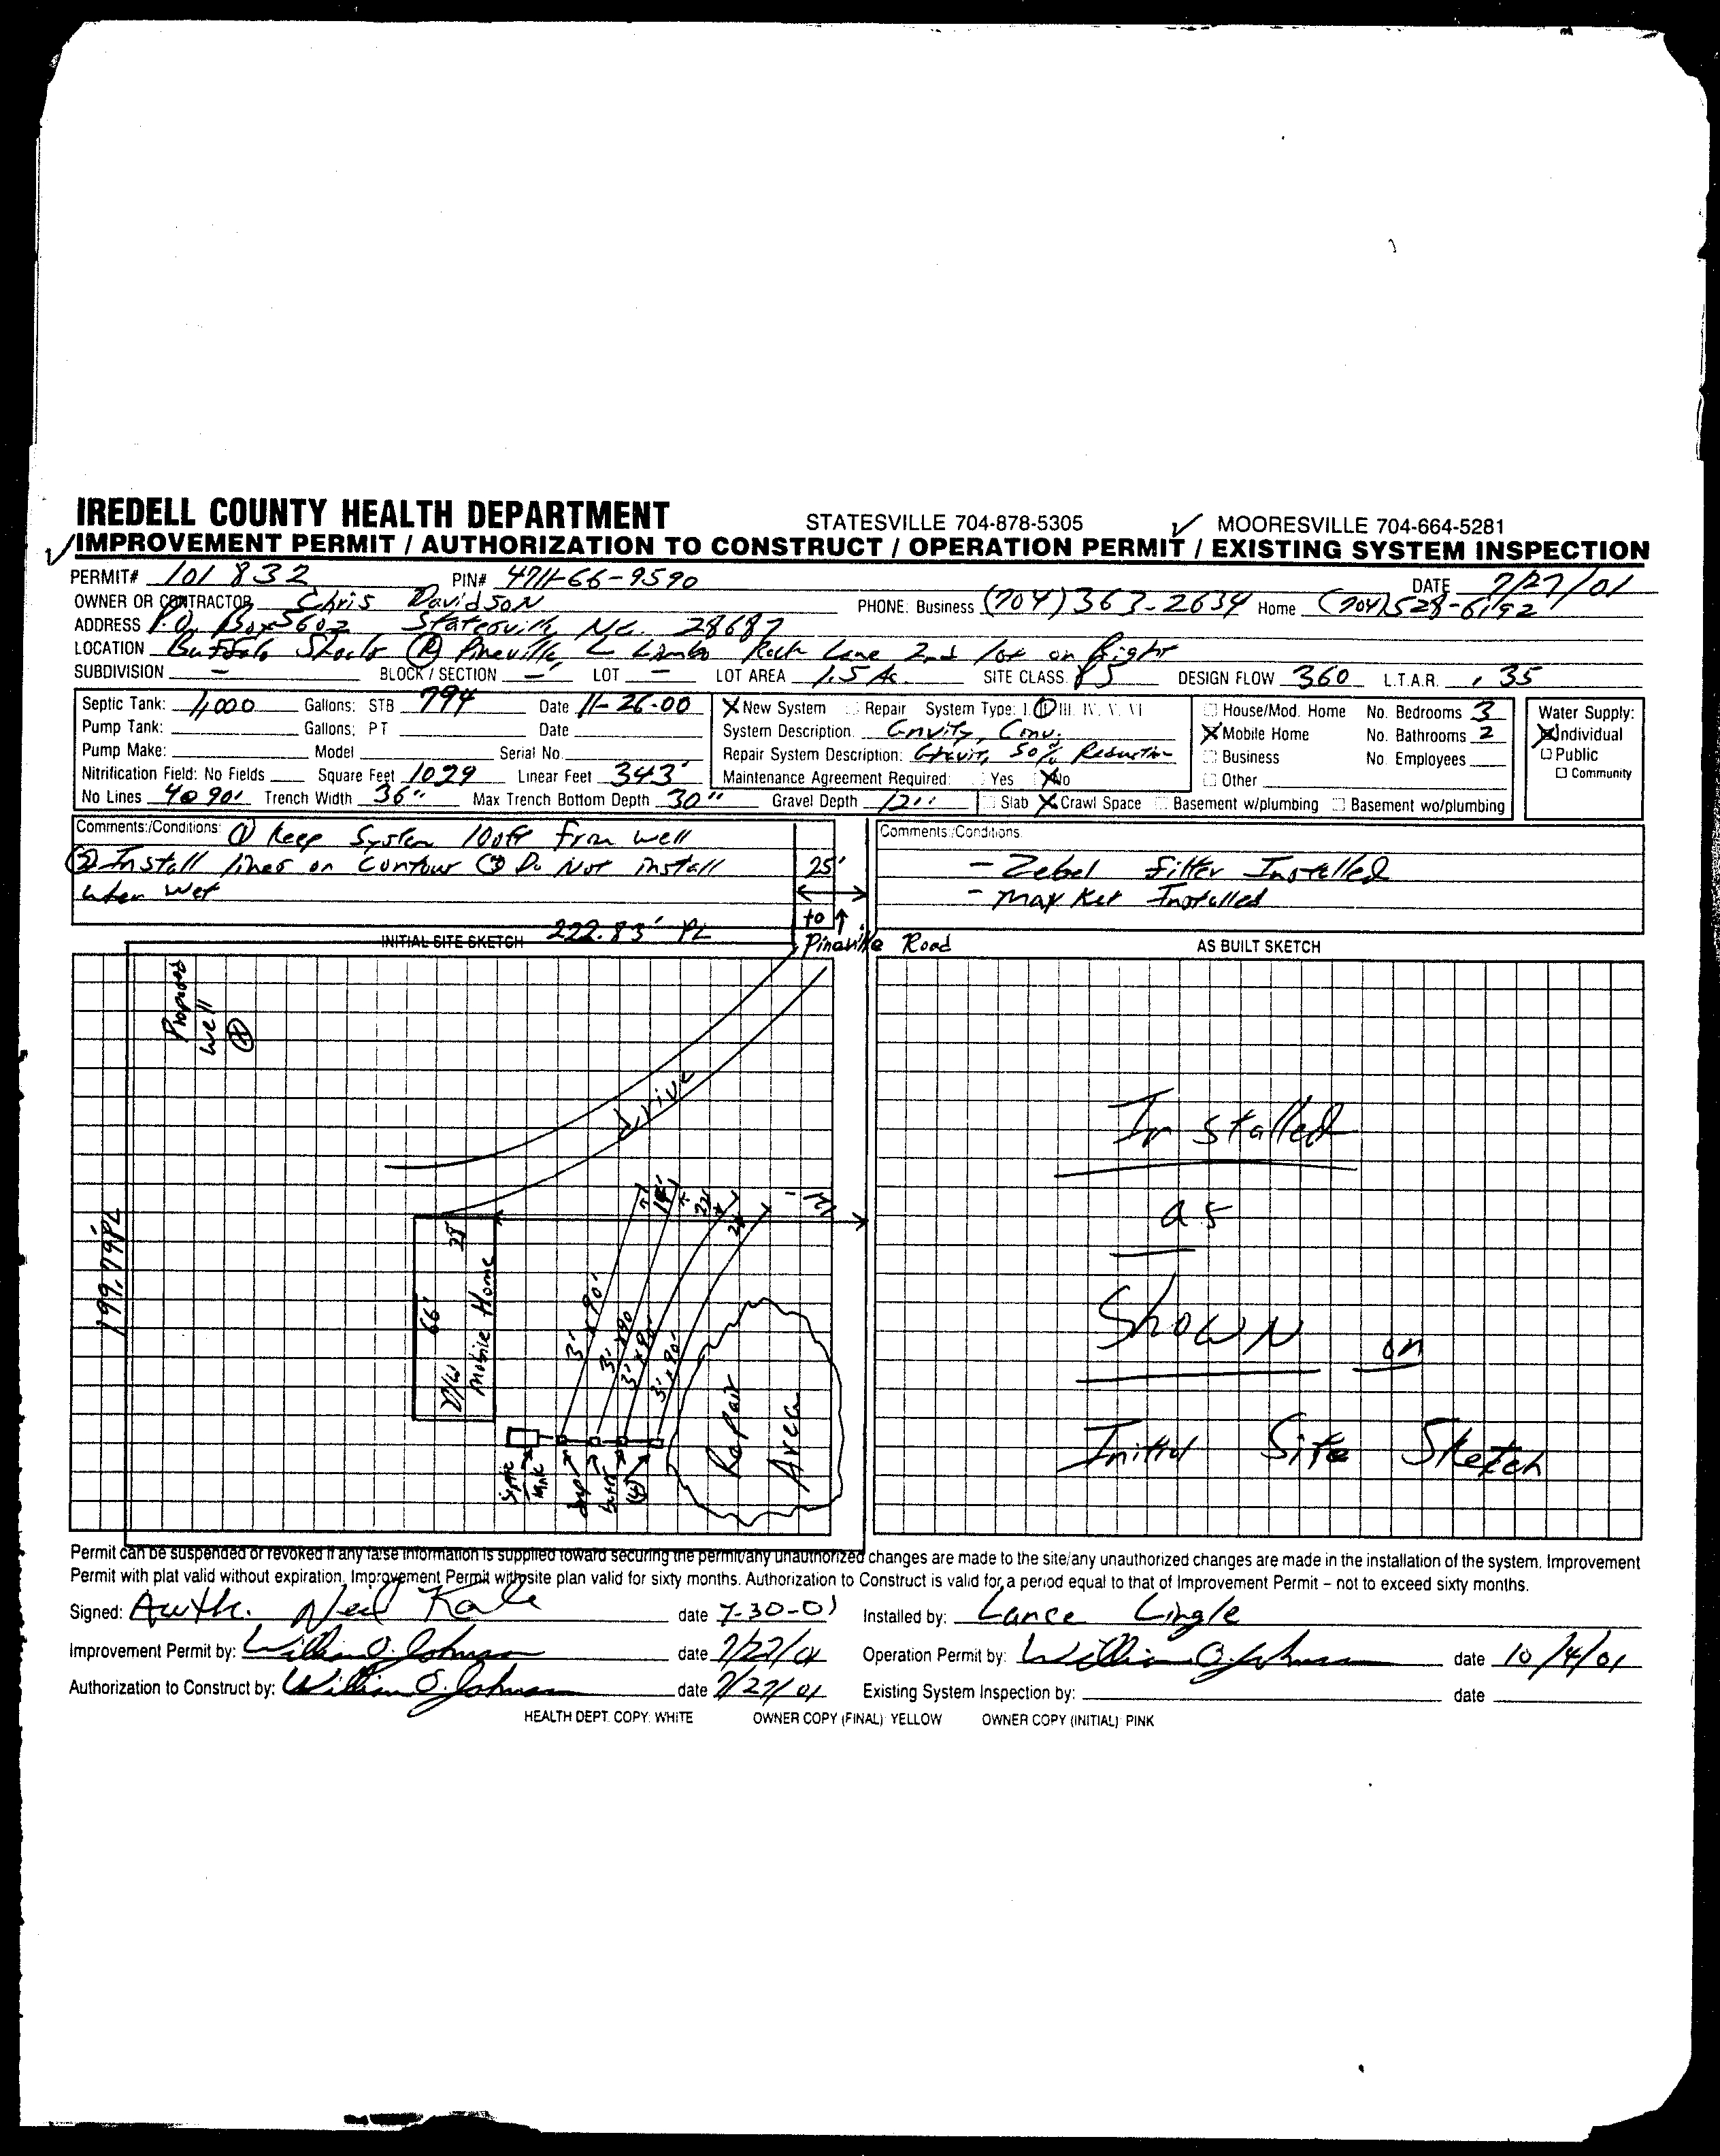 IREDELL COUNTY HEALTH DEPARTMENT STATESVILLE 704-878-5305 ✓ MOORESVILLE 704-664-5281
✓ IMPROVEMENT PERMIT / AUTHORIZATION TO CONSTRUCT / OPERATION PERMIT / EXISTING SYSTEM INSPECTION
PERMIT# 101832 PIN# 4711-66-9590 DATE 7/27/01
OWNER OR CONTRACTOR Chris Davidson PHONE: Business (704) 363-2634 Home (704) 528-6192
ADDRESS P.O. Box 5602 Statesville NC. 28687
LOCATION Buffalo Shoals (R) Pineville, L Rock Lane 2nd lot on Right
SUBDIVISION - BLOCK / SECTION - LOT - LOT AREA 1.5 Ac. SITE CLASS. PS DESIGN FLOW 360 L.T.A.R. .35
Septic Tank: 1,000 Gallons: STB 794 Date 11-26-00 X New System Repair System Type: I. II III. IV. V. VI House/Mod. Home No. Bedrooms 3 Water Supply:
Pump Tank: Gallons: PT Date System Description: Gravity, Conv. X Mobile Home No. Bathrooms 2 X Individual
Pump Make: Model Serial No. Repair System Description: Gravity, 50% Reduction Business No. Employees Public
Nitrification Field: No Fields Square Feet 1029 Linear Feet 343' Maintenance Agreement Required: Yes X No Other Community
No Lines 4@90' Trench Width 36" Max Trench Bottom Depth 30" Gravel Depth 12" Slab X Crawl Space Basement w/plumbing Basement wo/plumbing
Comments:/Conditions: ① Keep System 100ft From well
② Install lines on Contour ③ Do Not install
when wet
25'
to ↑
Pineville Road
Comments:/Conditions
- Zabel Filter Installed
- Installed
INITIAL SITE SKETCH 222.83' PL
AS BUILT SKETCH
Proposed
Well
drive
199.79' PL
28'
66'
D/W
Mobile Home
3' x 90'
3' x 90
3' x 90'
3' x 90'
Septic
tank
drop
boxes
(4)
Repair
Area
Installed
as
Shown on
Initial Site Sketch
Permit can be suspended or revoked if any false information is supplied toward securing the permit/any unauthorized changes are made to the site/any unauthorized changes are made in the installation of the system. Improvement
Permit with plat valid without expiration. Improvement Permit with site plan valid for sixty months. Authorization to Construct is valid for a period equal to that of Improvement Permit – not to exceed sixty months.
Signed: Auth. Neil Kale date 7-30-01 Installed by: Lance Lingle
Improvement Permit by: William O. Johnson date 7/27/01 Operation Permit by: William O. Johnson date 10/4/01
Authorization to Construct by: William O. Johnson date 7/27/01 Existing System Inspection by: date
HEALTH DEPT. COPY: WHITE OWNER COPY (FINAL) YELLOW OWNER COPY (INITIAL) PINK